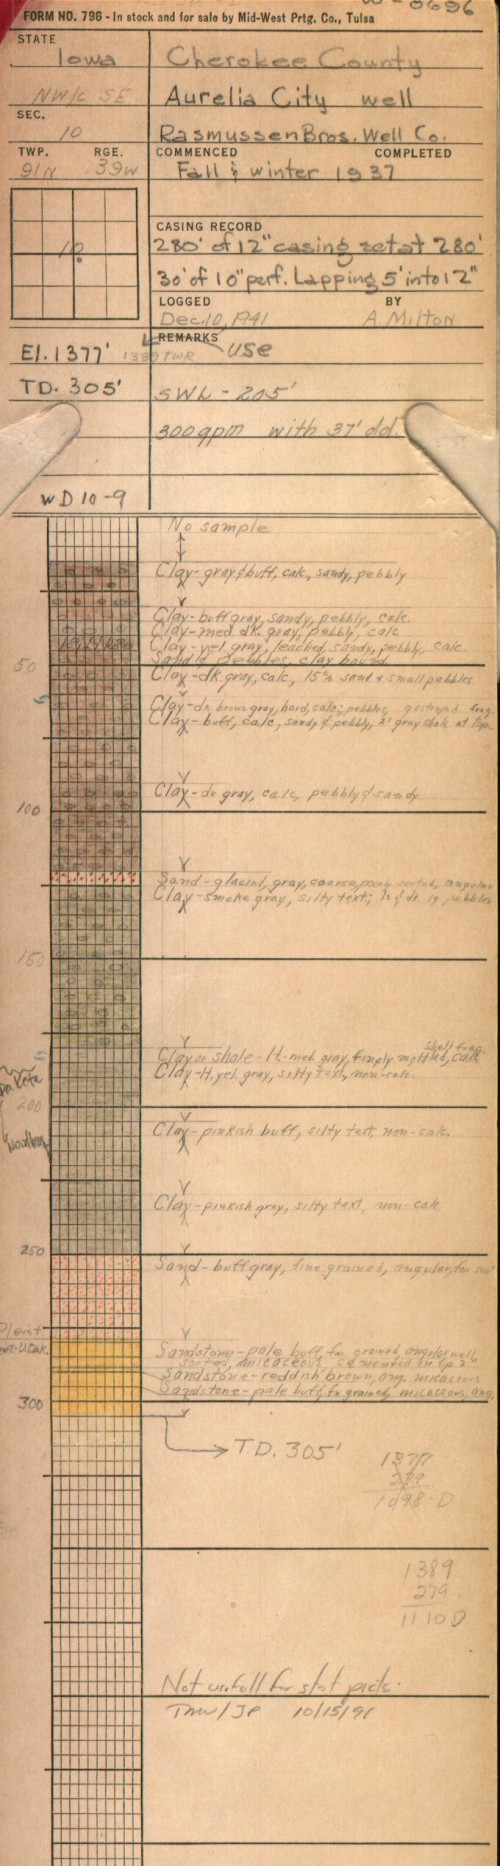 W-0696
FORM NO. 796 - In stock and for sale by Mid-West Prtg. Co., Tulsa
STATE
Iowa
Cherokee County
NW/c SE
Aurelia City well
SEC.
10
Rasmussen Bros. Well Co.
TWP. RGE.
91N 39W
COMMENCED COMPLETED
Fall & winter 1937
10
CASING RECORD
280' of 12" casing set at 280'
30' of 10" perf. Lapping 5' into 12"
LOGGED BY
Dec. 10, 1941 A. Milton
REMARKS
El. 1377' 1389 TWR use
TD. 305'
SWL - 205'
300gpm with 37' dd.
WD 10-9
No sample
Clay - gray & buff, calc, sandy, pebbly
Clay - buff gray, sandy, pebbly, calc.
Clay - med dk. gray, pebbly, calc
Clay - yel gray, leached, sandy, pebbly, calc.
Sand & pebbles, clay bound
50
Clay - dk gray, calc, 15% sand & small pebbles
Clay - dk. brown gray, hard, calc; pebbles, gastropod frag.
Clay - buff, calc, sandy & pebbly, 2' gray shale at top.
Clay - dk gray, calc, pebbly & sandy
100
Sand - glacial, gray, coarse, poorly sorted, angular
Clay - smoke gray, silty text; pebbles
150
shell frag.
Clay or shale - lt. med. gray, finely mottled, calc
Clay - lt. yel. gray, silty text, non-calc.
Dakota
200
Clay - pinkish buff, silty text, non-calc.
Woodbury
Clay - pinkish gray, silty text, non-calc.
250
Sand - buff gray, fine grained, angular
Pleist.
Sandstone - pale buff, fn grained, angular, well
sorted, micaceous cemented in
Sandstone - reddish brown, ang. micaceous
Sandstone - pale buff, fn grained, micaceous, ang.
300
TD. 305'
1377
279
1098-D
1389
279
1110 D
Not useful for strat picks.
TMW/JP 10/15/91